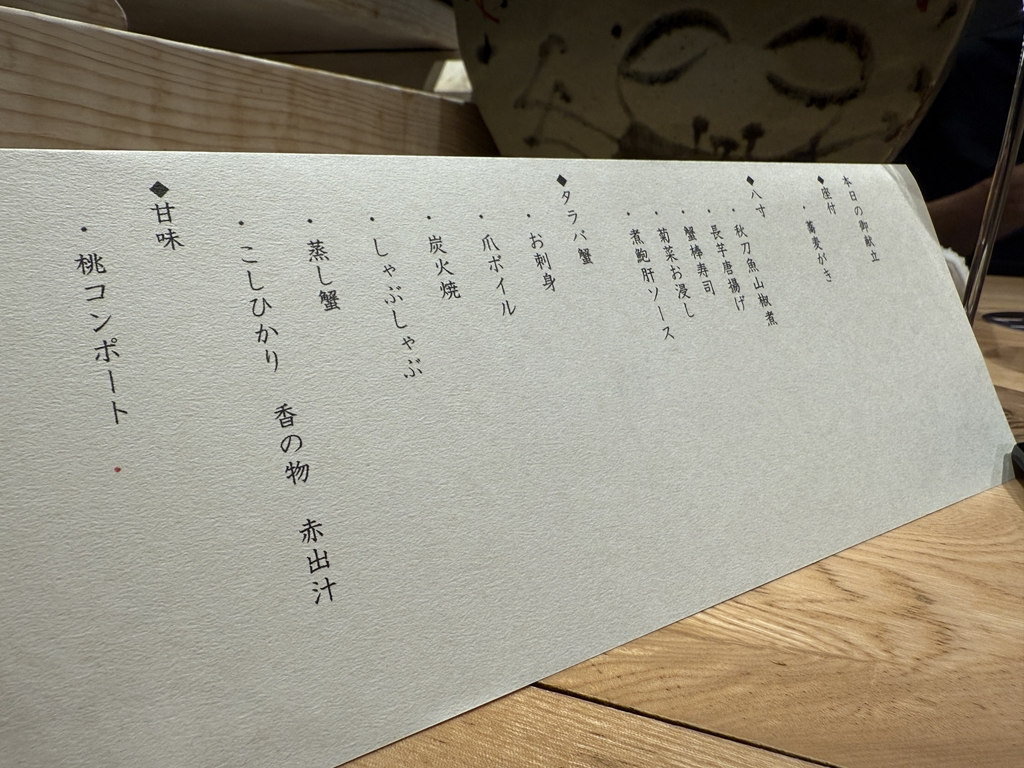 本日の御献立
◆座付
・蕎麦がき
◆八寸
・秋刀魚山椒煮
・長芋唐揚げ
・蟹棒寿司
・菊菜お浸し
・煮鮑肝ソース
◆タラバ蟹
・お刺身
・爪ボイル
・炭火焼
・しゃぶしゃぶ
・蒸し蟹
・こしひかり　香の物　赤出汁
◆甘味
・桃コンポート